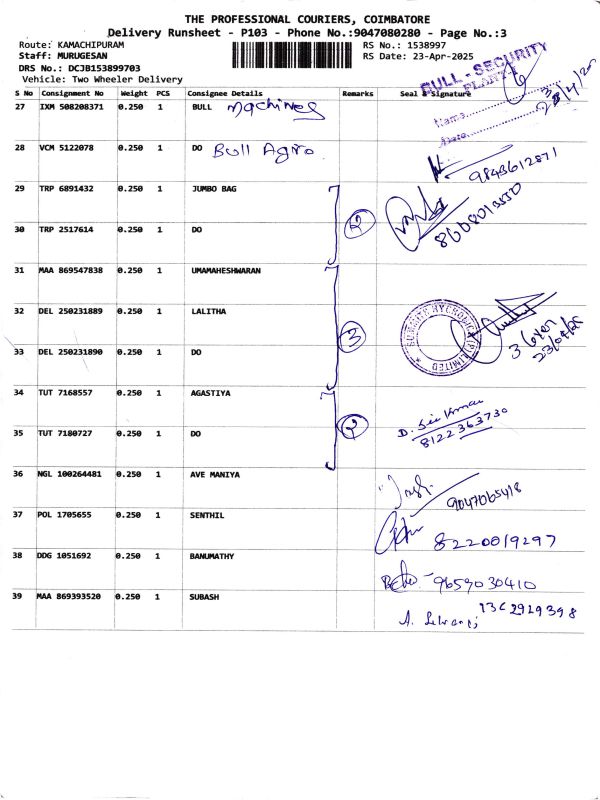 THE PROFESSIONAL COURIERS, COIMBATORE
Delivery Runsheet - P103 - Phone No.:9047080280 - Page No.:3
Route: KAMACHIPURAM
RS No.: 1538997
Staff: MURUGESAN
RS Date: 23-Apr-2025
DRS No.: DCJB153899703
Vehicle: Two Wheeler Delivery
S No Consignment No Weight PCS Consignee Details Remarks Seal & Signature
BULL - SECURITY
PLANT
Name
Date
27 IXM 508208371 0.250 1 BULL Machines
28 VCM 5122078 0.250 1 DO Bull Agro
9843612871
29 TRP 6891432 0.250 1 JUMBO BAG
2
8608013550
30 TRP 2517614 0.250 1 DO
31 MAA 869547838 0.250 1 UMAMAHESHWARAN
32 DEL 250231889 0.250 1 LALITHA
3
(P) LIMITED
23/04/25
33 DEL 250231890 0.250 1 DO
34 TUT 7168557 0.250 1 AGASTIYA
2
8122363730
35 TUT 7180727 0.250 1 DO
36 NGL 100264481 0.250 1 AVE MANIYA
9047065418
37 POL 1705655 0.250 1 SENTHIL
8220019297
38 DDG 1051692 0.250 1 BANUMATHY
9659030410
39 MAA 869393520 0.250 1 SUBASH